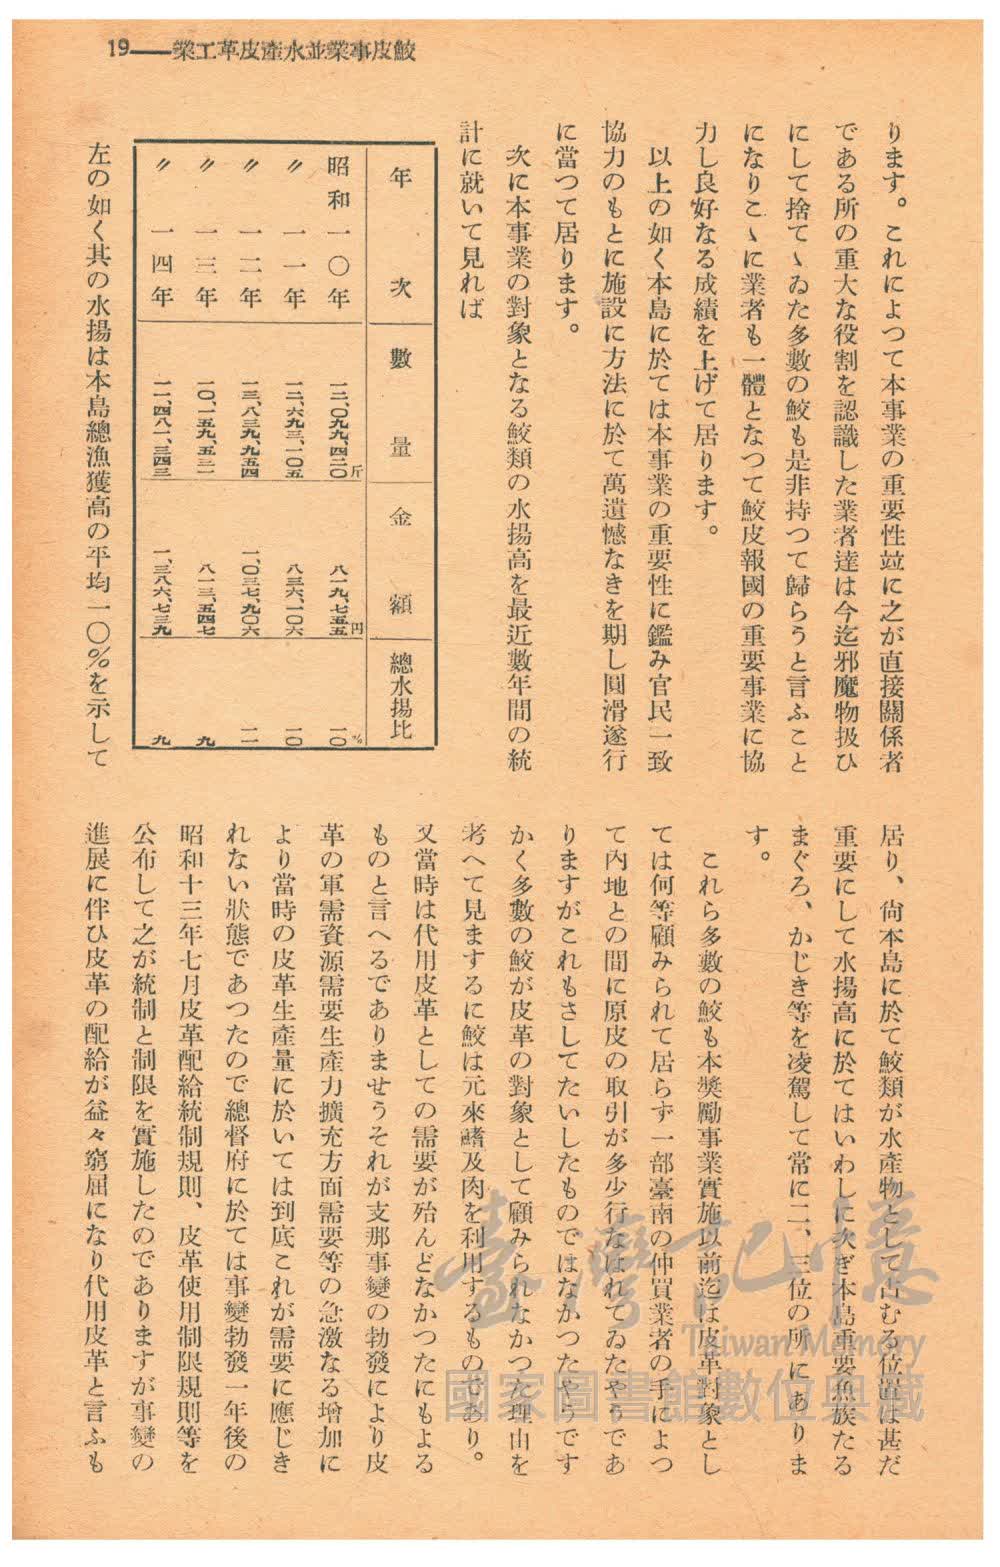 鮫皮事業並水產皮革工業——19
ります。これによつて本事業の重要性竝に之が直接關係者
である所の重大な役割を認識した業者達は今迄邪魔物扱ひ
にして捨てゝゐた多數の鮫も是非持つて歸らうと言ふこと
になりこゝに業者も一體となつて鮫皮報國の重要事業に協
力し良好なる成績を上げて居ります。
以上の如く本島に於ては本事業の重要性に鑑み官民一致
協力のもとに施設に方法に於て萬遺憾なきを期し圓滑遂行
に當つて居ります。
次に本事業の對象となる鮫類の水揚高を最近數年間の統
計に就いて見れば
年次 數量 金額 總水揚比
昭和一〇年 一二、〇九九、四二〇斤 八一九、七五五円 一〇%
〃一一年 一二、六九三、一〇五 八三六、一〇六 一〇
〃一二年 一三、八三九、九五四 一、〇三七、九〇六 一一
〃一三年 一〇、一五九、五三一 八一三、五四七 九
〃一四年 一一、四八一、三四三 一、三八六、七三九 九
左の如く其の水揚は本島總漁獲高の平均一〇%を示して
居り、尙本島に於て鮫類が水產物として占むる位置は甚だ
重要にして水揚高に於てはいわしに次ぎ本島重要魚族たる
まぐろ、かじき等を凌駕して常に二、三位の所にありま
す。
これら多數の鮫も本獎勵事業實施以前迄は皮革對象とし
ては何等顧みられて居らず一部臺南の仲買業者の手によつ
て內地との間に原皮の取引が多少行なはれてゐたやうであ
りますがこれもさしてたいしたものではなかつたやうです
かく多數の鮫が皮革の對象として顧みられなかつた理由を
考へて見まするに鮫は元來鰭及肉を利用するものであり。
又當時は代用皮革としての需要が殆んどなかつたにもよる
ものと言へるでありませうそれが支那事變の勃發により皮
革の軍需資源需要生產力擴充方面需要等の急激なる增加に
より當時の皮革生產量に於いては到底これが需要に應じき
れない狀態であつたので總督府に於ては事變勃發一年後の
昭和十三年七月皮革配給統制規則、皮革使用制限規則等を
公布して之が統制と制限を實施したのでありますが事變の
進展に伴ひ皮革の配給が益々窮屈になり代用皮革と言ふも
臺灣記憶
Taiwan Memory
國家圖書館數位典藏